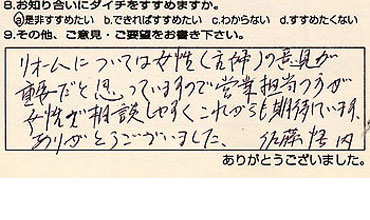 8.お知り合いにダイチをすすめますか。
ⓐ是非すすめたい b.できればすすめたい c.わからない d.すすめたくない
9.その他、ご意見・ご要望をお書き下さい。
リホームについては女性(主婦)の意見が
重要だと思っていますので営業担当の方が
女性が相談しやすくこれからも期待しています。
ありがとうございました。 佐藤悟 内
ありがとうございました。